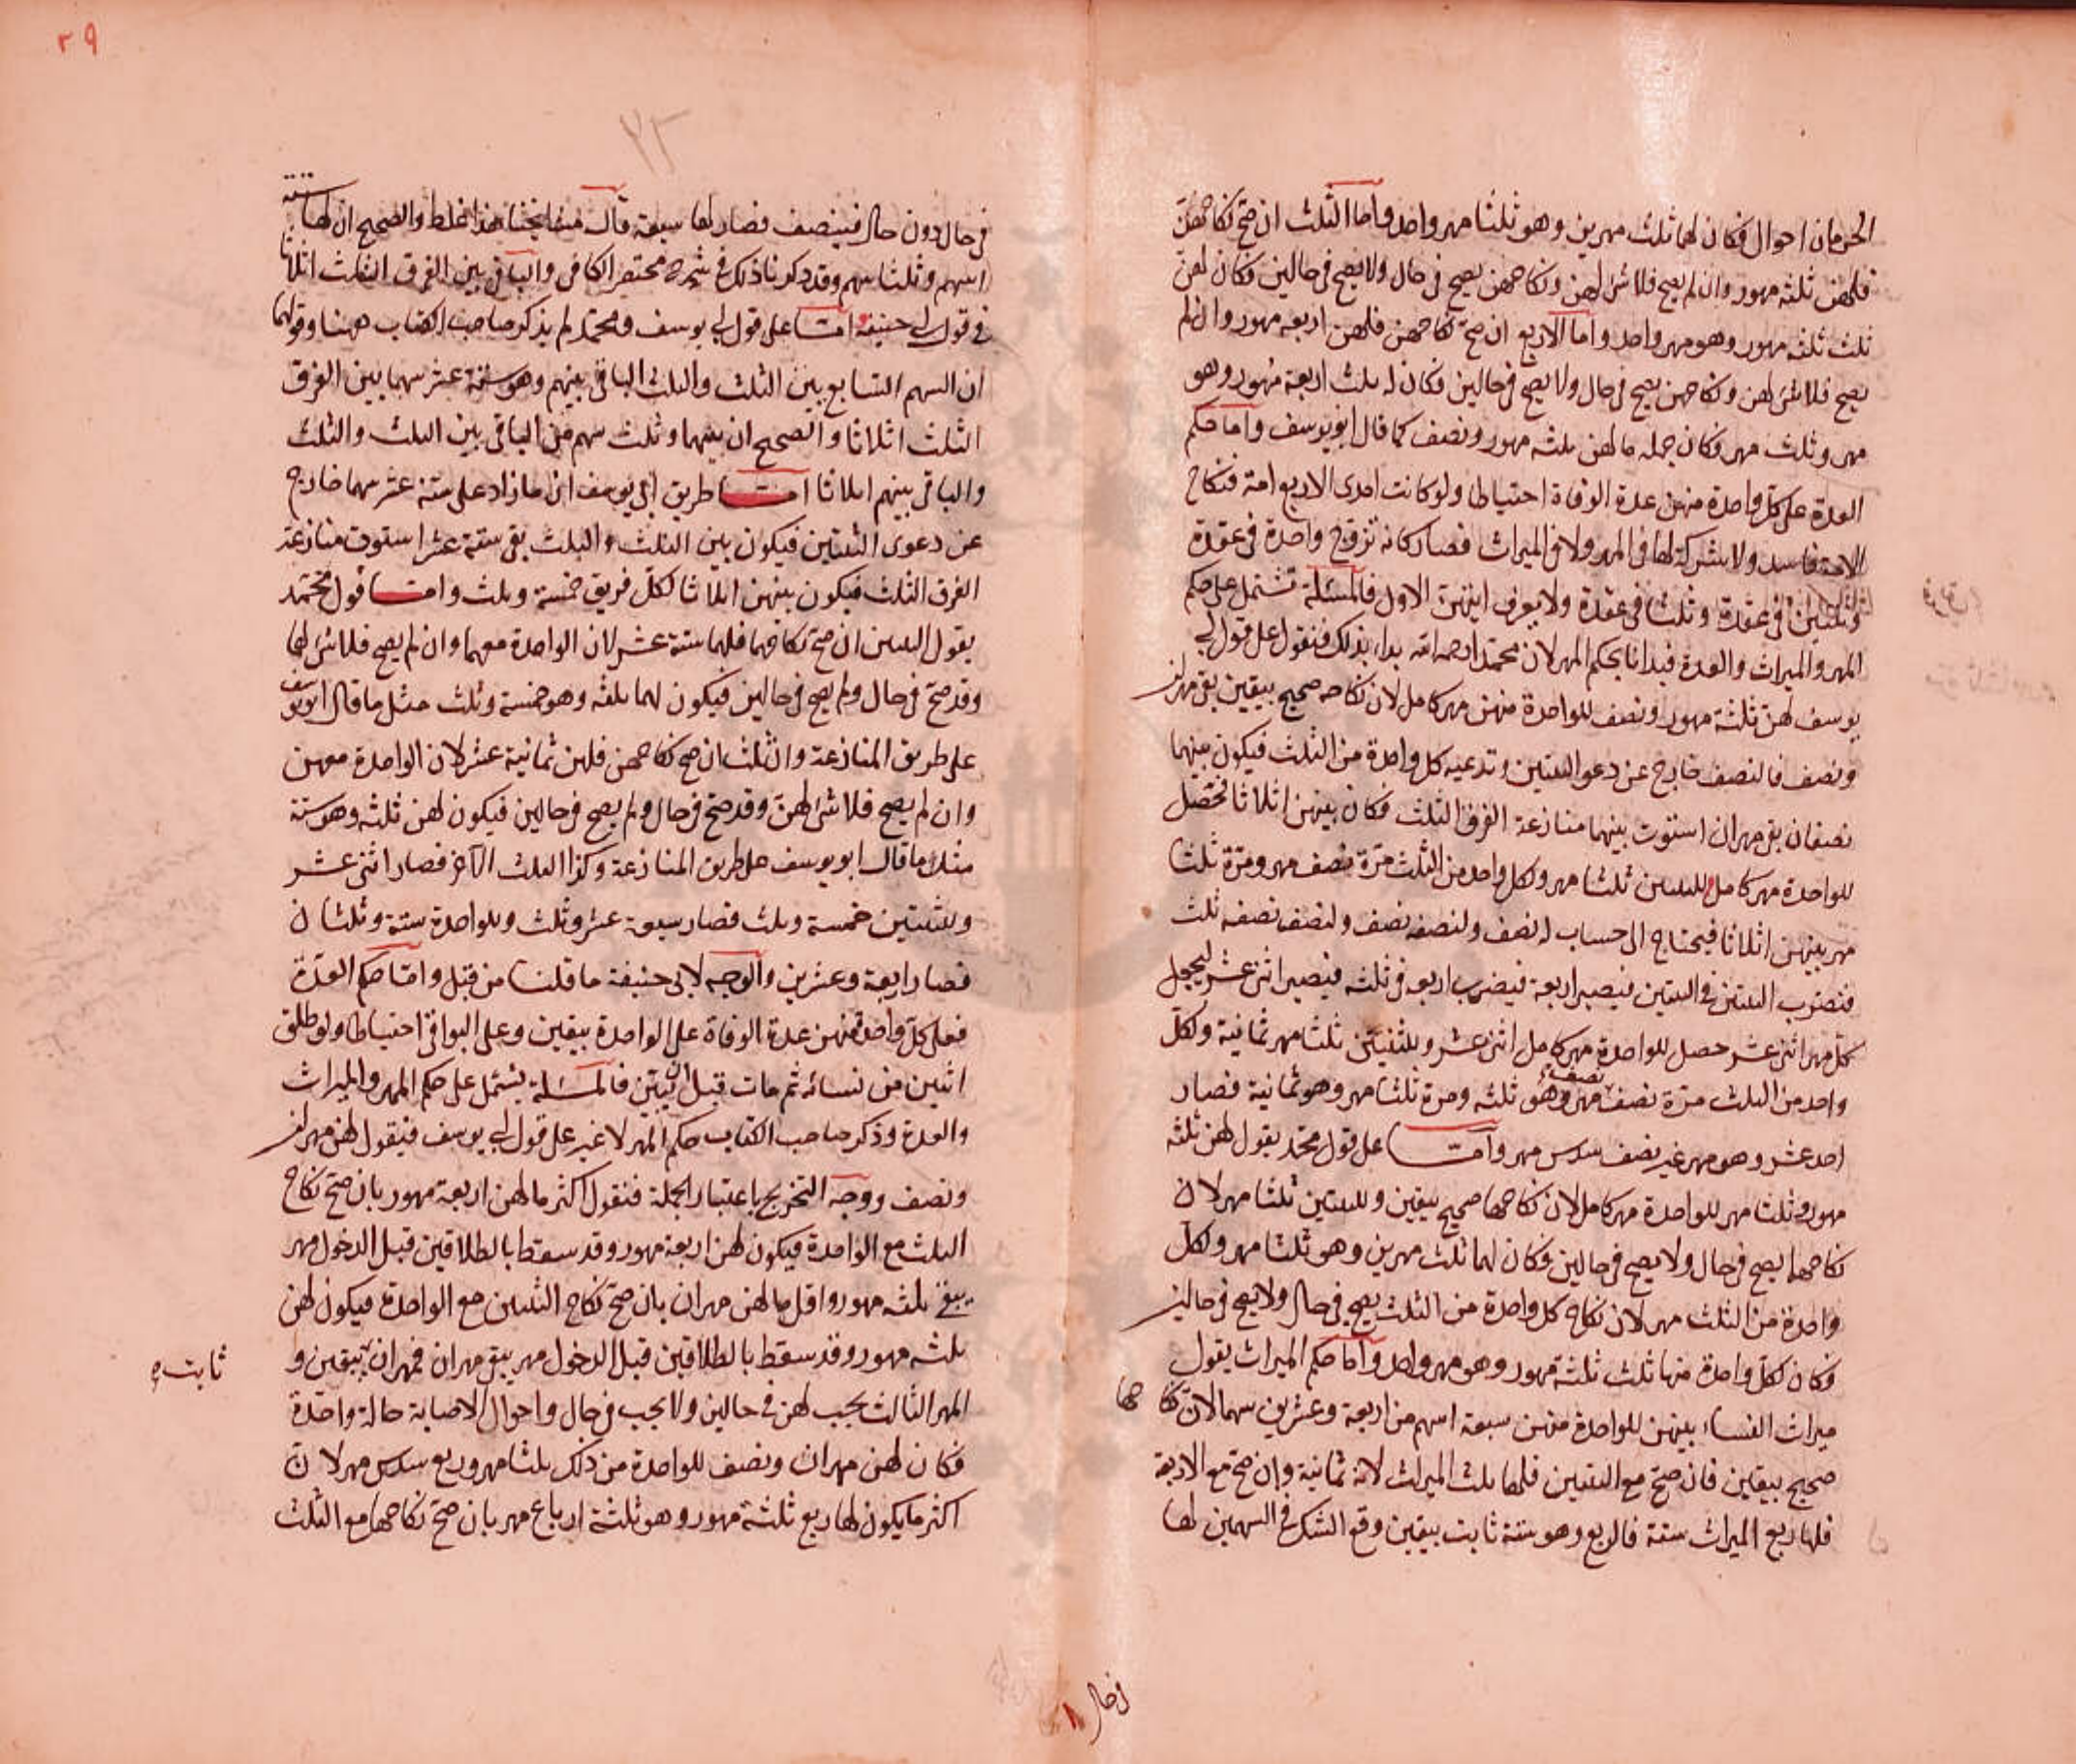 الحرمان احوال فكان لها ثلث مهرين وهو ثلثا مهر واحد واما الثلث ان صح نكاحهن
فلهن ثلثه مهور وان لم يصح فلا شئ لهن ونكاحهن يصح فى حال ولا يصح فى حالين فكان لهن
ثلث ثلثه مهور وهو مهر واحد واما الاربع ان صح نكاحهن فلهن اربعه مهور وان لم
يصح فلا شئ لهن ونكاحهن يصح فى حال ولا يصح فى حالين فكان له ثلث اربعة مهور وهو
مهر وثلث مهر فكان جمله ما لهن ثلثه مهور ونصف كما قال ابو يوسف واما حكم
العدة على كل واحدة منهن عدة الوفاة احتياطا ولو كانت احدى الاربع امة فنكاح
الامة فاسد ولا شركة لها فى المهر ولا فى الميراث فصار كانه تزوج واحدة فى عقدة
وثنتين فى عقدة وثلثا فى عقدة ولا يعرف ايتهن الاول فالمسئلة تشتمل على حكم
المهر والميراث والعدة فبدأنا بحكم المهر لان محمدا رحمه الله بداء بذلك فنقول على قول ابى
يوسف لهن ثلثة مهور ونصف للواحدة منهن مهر كامل لان نكاحه صحيح بيقين بقى مهران
ونصف فالنصف خارج عن دعوا الثنتين وتدعيه كل واحدة من الثلث فيكون بينهما
نصفان بقى مهران استوت بينهما منازعة الفرق الثلث فكان بينهن اثلاثا فحصل
للواحدة مهر كامل للثنتين ثلثا مهر ولكل واحد من الثلث مرة نصف مهر ومرة ثلثا
مهر بينهن اثلاثا فيحتاج الى حساب له نصف ولنصفه نصف ولنصف نصفه ثلث
فنضرب اثنتين فى اثنتين فيصير اربعة فيضرب اربعه فى ثلثه فيصير اثنى عشر ليجعل
كل مهر اثنى عشر حصل للواحدة مهر كامل اثنى عشر وللثنتين ثلثا مهر ثمانية ولكل
واحد من الثلث مرة نصف نصف مهر وهو ثلثه ومرة ثلثا مهر وهو ثمانية فصار
احد عشر وهو مهر غير نصف سدس مهر واما على قول محمد يقول لهن ثلثه
مهور وثلثا مهر للواحدة مهر كامل لان نكاحها صحيح بيقين وللثنتين ثلثا مهر لان
نكاحهما يصح فى حال ولا يصح فى حالين فكان لهما ثلث مهرين وهو ثلثا مهر ولكل
واحدة من الثلث مهر لان نكاح كل واحدة من الثلث يصح فى حال ولا يصح فى حالين
فكان لكل واحدة منها ثلث ثلثة مهور وهو مهر واحد واما حكم الميراث يقول
ميراث النساء بينهن للواحدة منهن سبعة اسهم من اربعة وعشرين سهما لان نكاحها
صحيح بيقين فان صح مع الثنتين فلها ثلث الميراث لانه ثمانية وان صح مع الاربعة
فلها ربع الميراث ستة فالربع وهو ستة ثابت بيقين وقع الشك فى السهمين لها
فى حال
٢٩
٢٣
فى حال دون حال فينصف فصار لها سبعة قال مشايخنا هذا غلط والصحيح ان لها ستة
اسهم وثلثا سهم وقد ذكرنا ذلك فى شرح مختصر الكافى والباقى بين الفرق الثلث اثلاثا
فى قول ابى حنيفة اما على قول ابى يوسف ومحمد لم يذكر صاحب الكتاب ههنا وقولهما
ان السهم السابع بين الثلث والثلث الباقى بينهم وهو ستة عشر سهما بين الفرق
الثلث اثلاثا والصحيح ان سهما وثلث سهم من الباقى بين الثلث والثلث
والباقى بينهم اثلاثا اما طريق ابى يوسف ان ما زاد على ستة عشر سهما خارج
عن دعوى الثنتين فيكون بين الثلث والثلث بقى ستة عشر استوت منازعة
الفرق الثلث فيكون بينهن اثلاثا لكل فريق خمسة وثلث واما قول محمد
يقول الثنتين ان صح نكاحهما فلهما ستة عشر لان الواحدة معهما وان لم يصح فلا شئ لهما
وقد صح فى حال ولم يصح فى حالين فيكون لهما ثلثه وهو خمسة وثلث مثل ما قال ابو يوسف
على طريق المنازعة والثلث ان صح نكاحهن فلهن ثمانية عشر لان الواحدة معهن
وان لم يصح فلا شئ لهن وقد صح فى حال ولم يصح فى حالين فيكون لهن ثلثه وهو ستة
مثل ما قال ابو يوسف على طريق المنازعة وكذا الثلث الآخر فصار اثنى عشر
وللثنتين خمسة وثلث فصار سبعة عشر وثلث وللواحدة ستة وثلثان
فصار اربعة وعشرين والوجه لابى حنيفة ما قلنا من قبل واما حكم العدة
فعلى كل واحدة منهن عدة الوفاة على الواحدة بيقين وعلى البواقى احتياطا ولو طلق
اثنين من نسائه ثم مات قبل ان يبين فالمسئلة يشتمل على حكم المهر والميراث
والعدة وذكر صاحب الكتاب حكم المهر لا غير على قول ابى يوسف فنقول لهن مهران
ونصف ووجه التخريج باعتبار الجملة فنقول اكثر ما لهن اربعة مهور بان صح نكاح
الثلث مع الواحدة فيكون لهن اربعة مهور وقد سقط بالطلاقين قبل الدخول مهر
يبقى ثلثه مهور واقل ما لهن مهران بان صح نكاح الثنتين مع الواحدة فيكون لهن
ثلثه مهور وقد سقط بالطلاقين قبل الدخول مهر يبقى مهران فمهران بيقين و
ثابت
المهر الثالث يجب لهن فى حالين ولا يجب فى حال واحوال الاصابة حالة واحدة
فكان لهن مهران ونصف للواحدة من ذلك ثلثا مهر وربع سدس مهر لان
اكثر ما يكون لها ربع ثلثة مهور وهو ثلثة ارباع مهر بان صح نكاحها مع الثلث